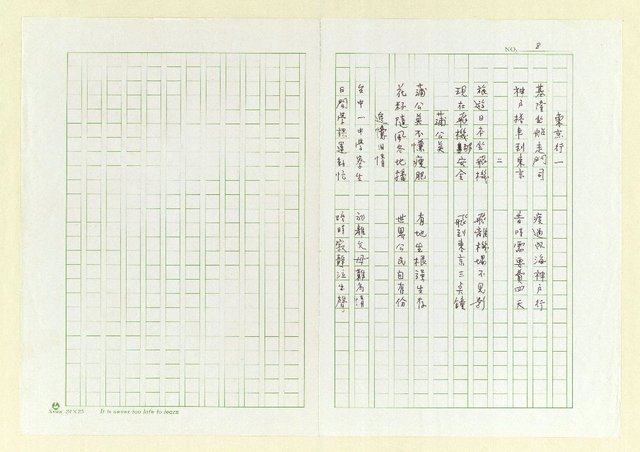 NO. 8
東京行一
基隆坐船走門司 瀨戶內海神戶行
神戶搭車到東京 昔時需要費四天
二
旅遊日本坐飛機 飛離機場不見影
現在飛機安全 飛到東京三点鐘
蒲公英
蒲公英不懼瘦肥 有地生根淺生存
花籽隨風各地播 世界公民自有份
追懷旧情
台中一中學寮生 初離父母難為情
日間學課運動忙 晚時寂靜泣出聲
24×25 It is never too late to learn